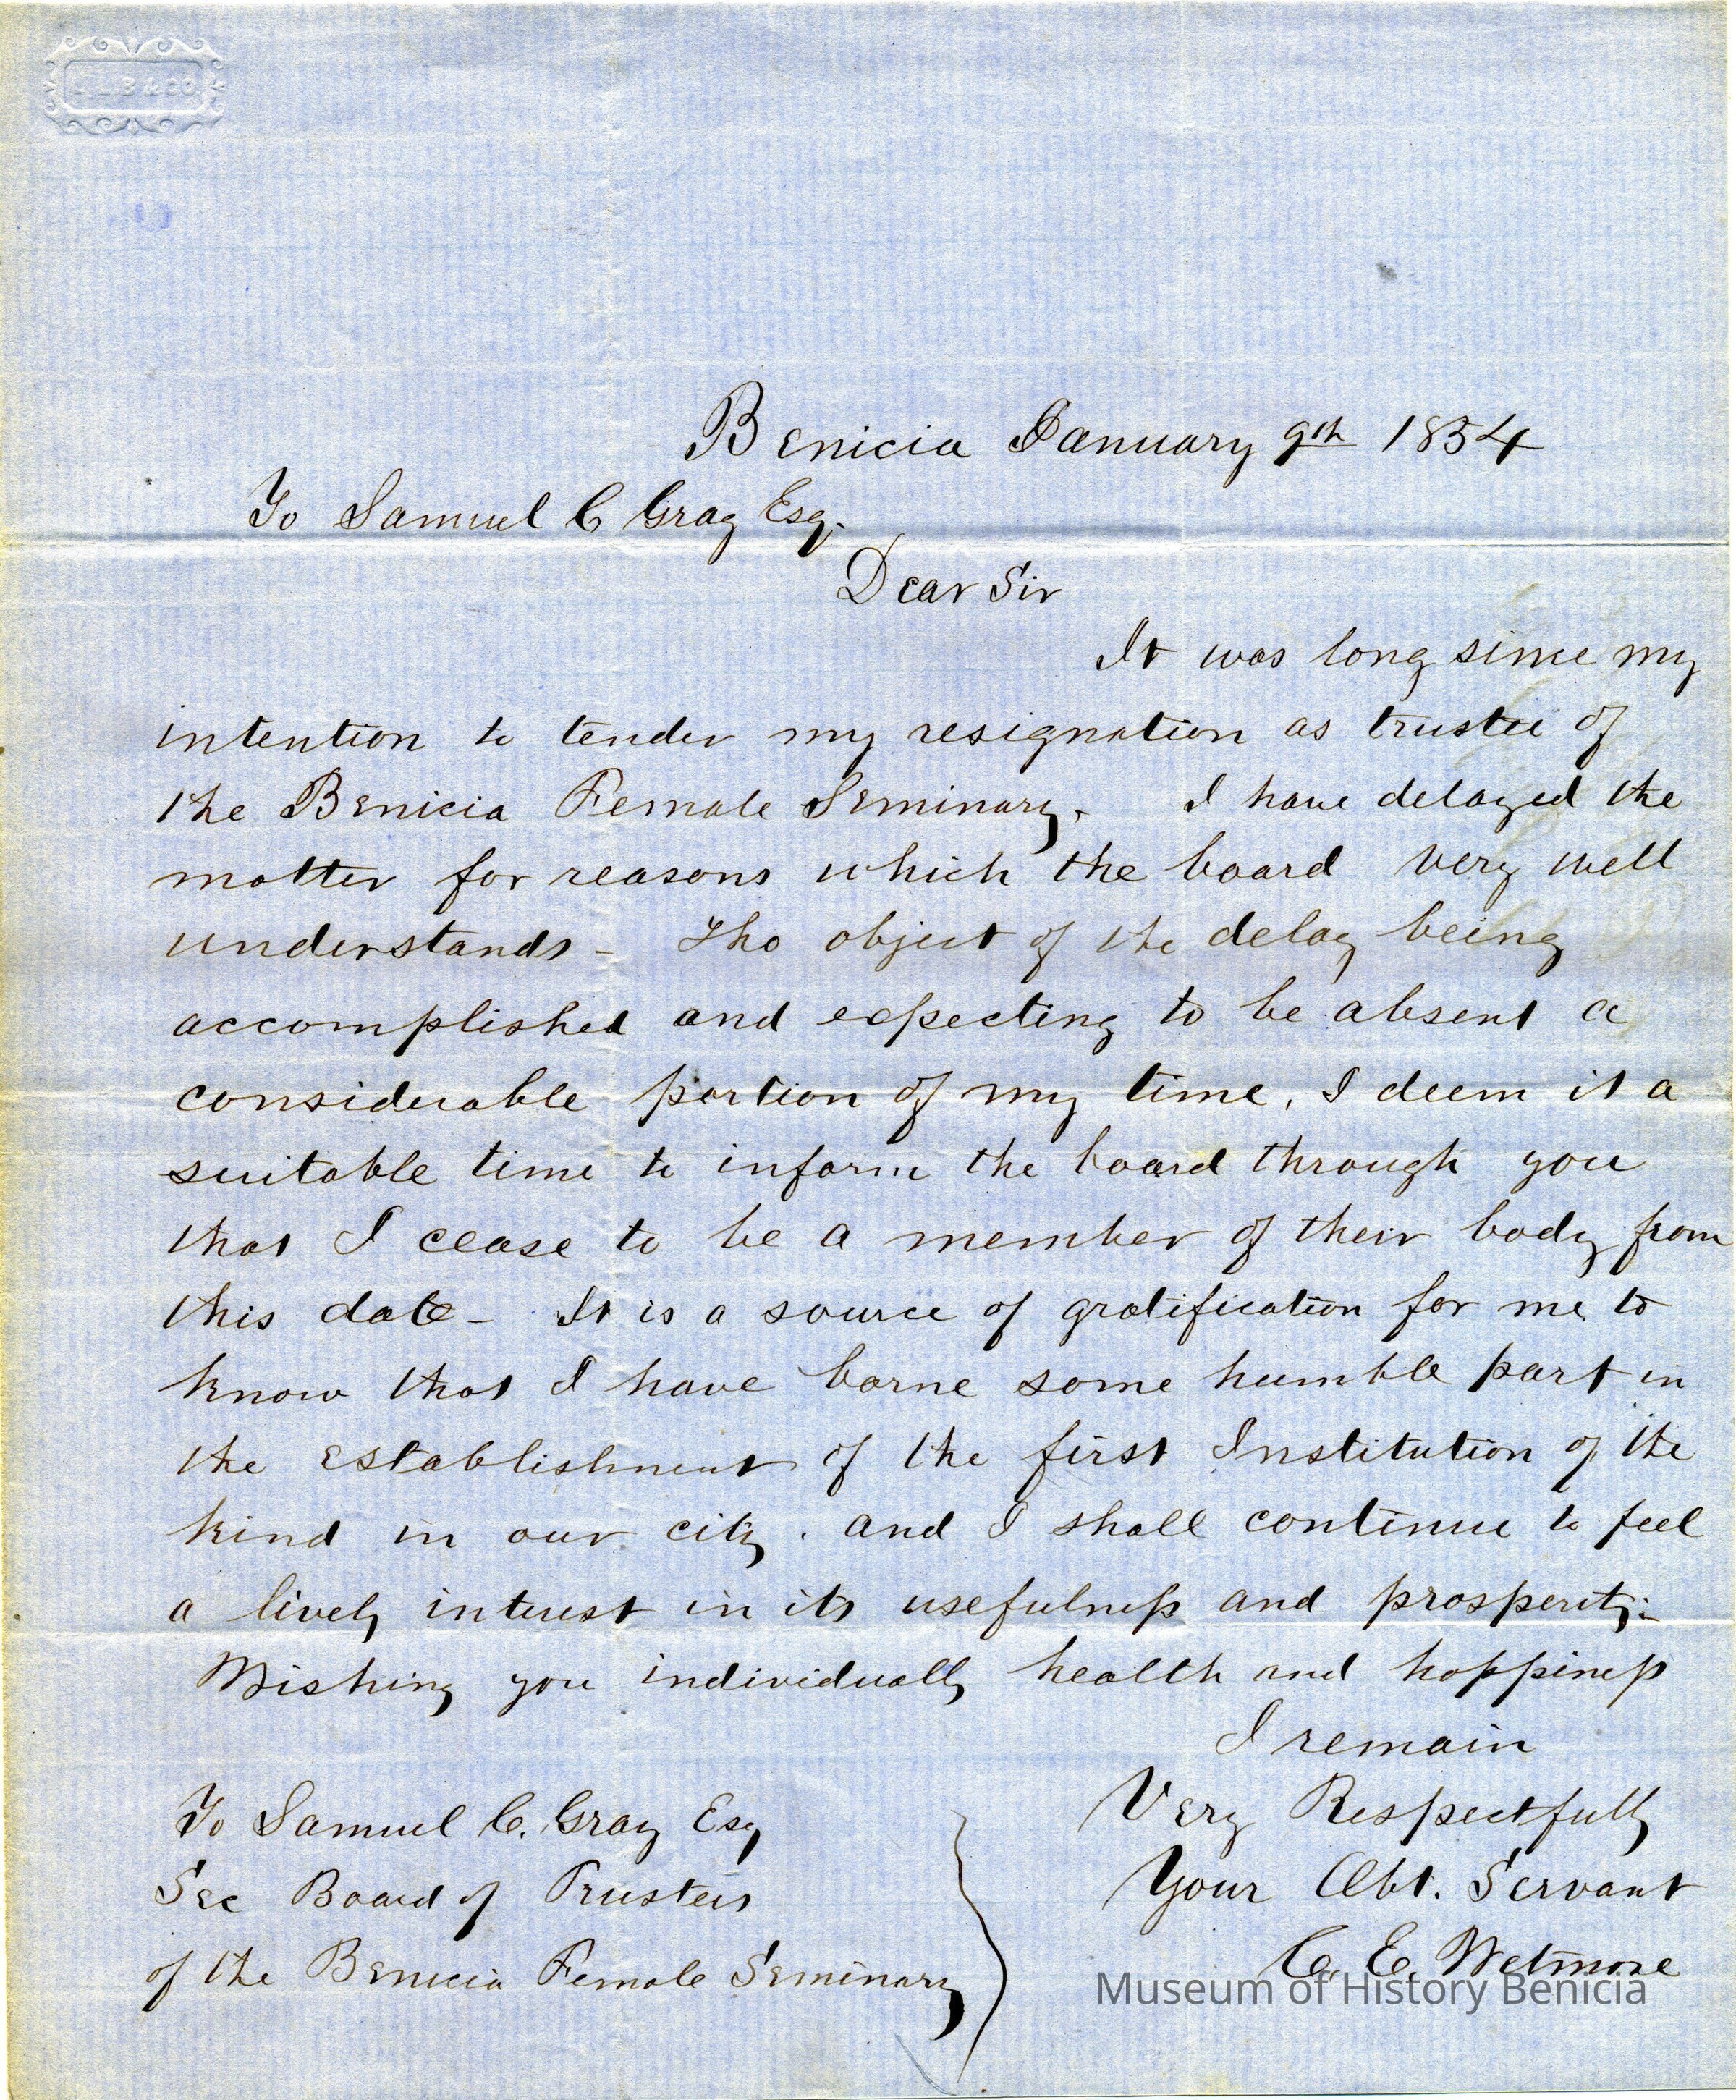 Benicia January 9th 1854
To Samuel C Gray Esq.
Dear Sir
It was long since my
intention to tender my resignation as trustee of
the Benicia Female Seminary. I have delayed the
matter for reasons which the board very well
understands - The object of the delay being
accomplished and expecting to be absent a
considerable portion of my time, I deem it a
suitable time to inform the board through you
that I cease to be a member of their body from
this date - It is a source of gratification for me to
know that I have borne some humble part in
the establishment of the first Institution of the
kind in our city. and I shall continue to feel
a lively interest in its usefulness and prosperity.
Wishing you individually health and happiness
I remain
Very Respectfully
Your Obt. Servant
C. E. Wetmore
To Samuel C. Gray Esq
Sec Board of Trustees
of the Benicia Female Seminary
Museum of History Benicia